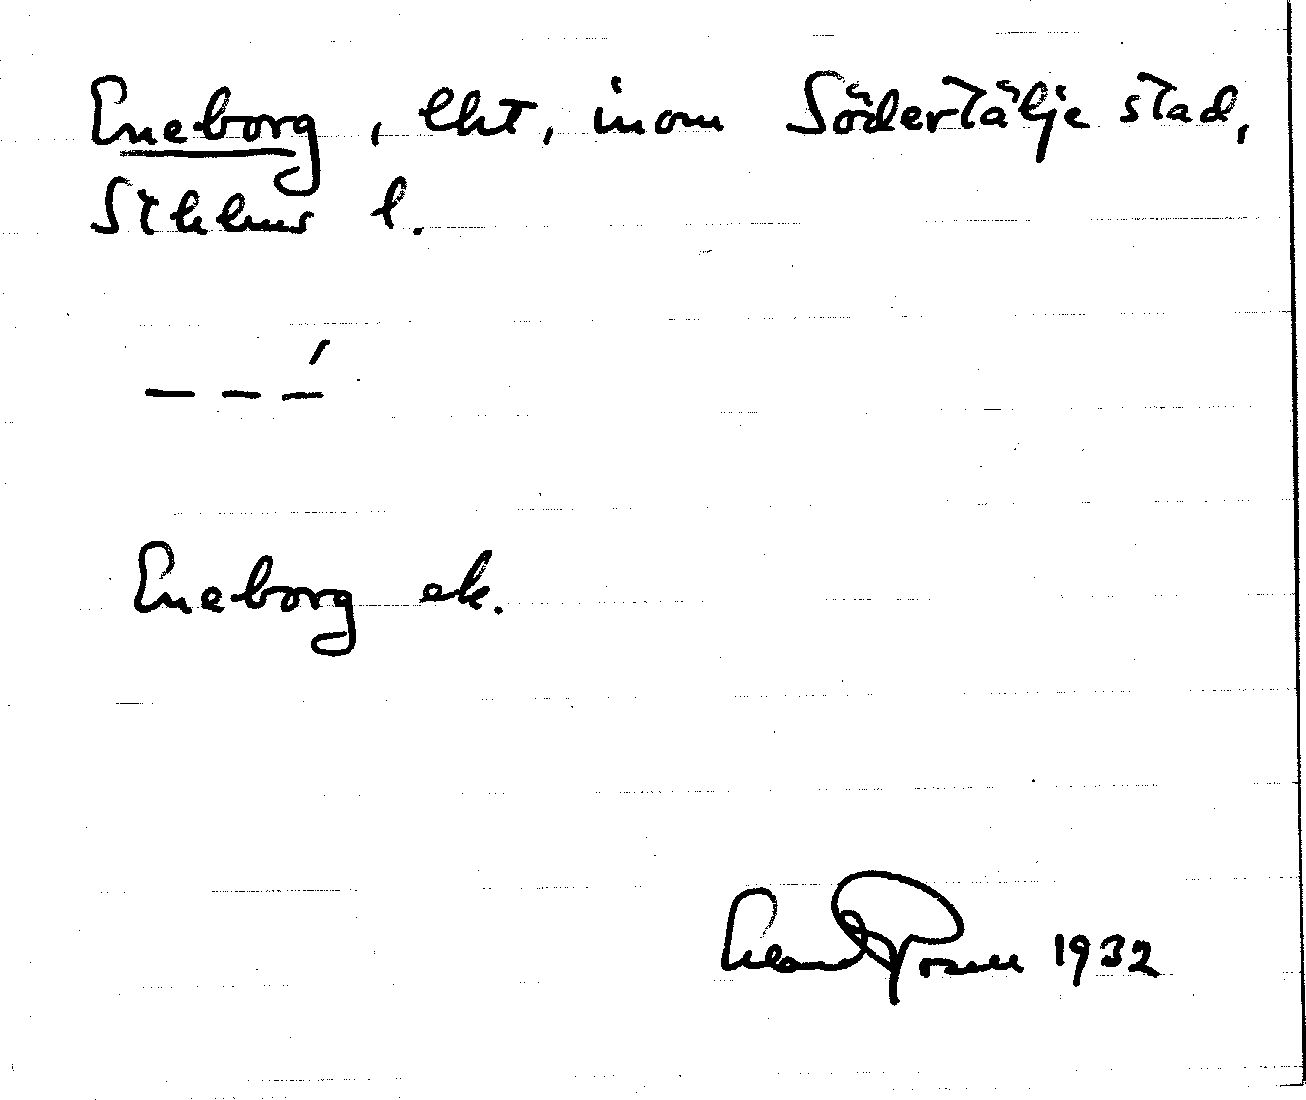 Eneborg, lht, inom Södertälje stad,
Sthlms l.
– – –́
Eneborg ek.
1932